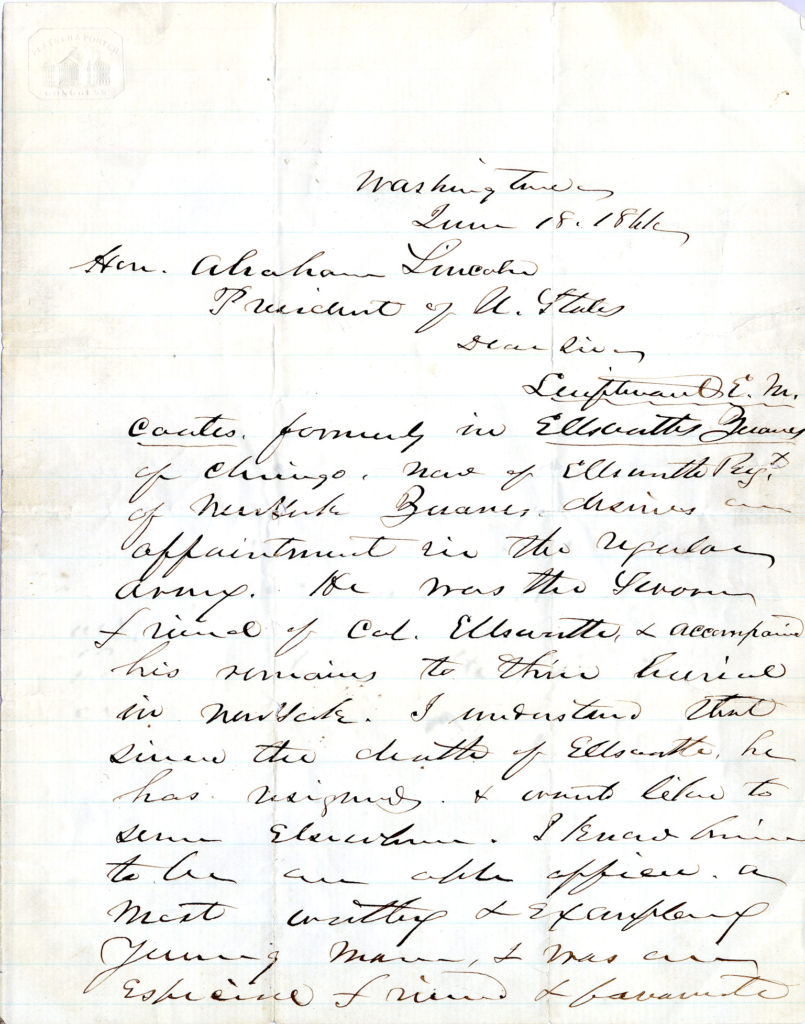 CONGRESS
Washington
June 18. 1861
Hon. Abraham Lincoln
President of U. States
Dear Sir
Lieutenant E. M.
Coates. formerly in Ellsworths Zuaves
of Chicago. now of Ellsworth Regt
of New York Zuaves. desires an
appointment in the regular
army. He was the sworn
friend of Col. Ellsworth, & accompanied
his remains to their burial
in New York. I understand that
since the death of Ellsworth, he
has resigned. & would like to
serve Elsewhere. I know him
to be an able officer. a
most worthy & Exemplary
Young man, & was an
Especial friend & favourite